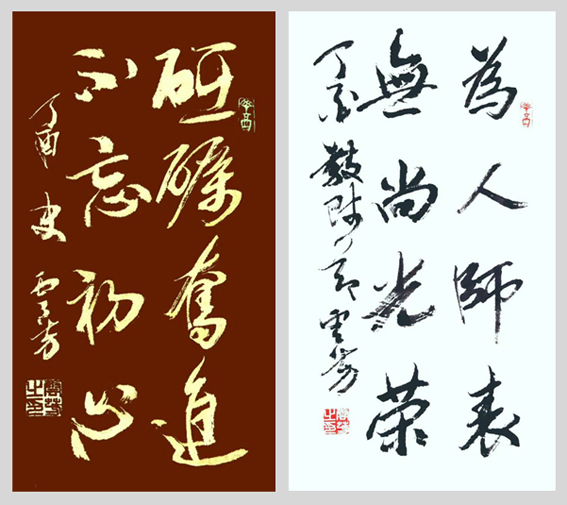 砥礪奮進
不忘初心
丁酉 雲芳
為人師表
無尚光荣
丁酉教師節雲芳